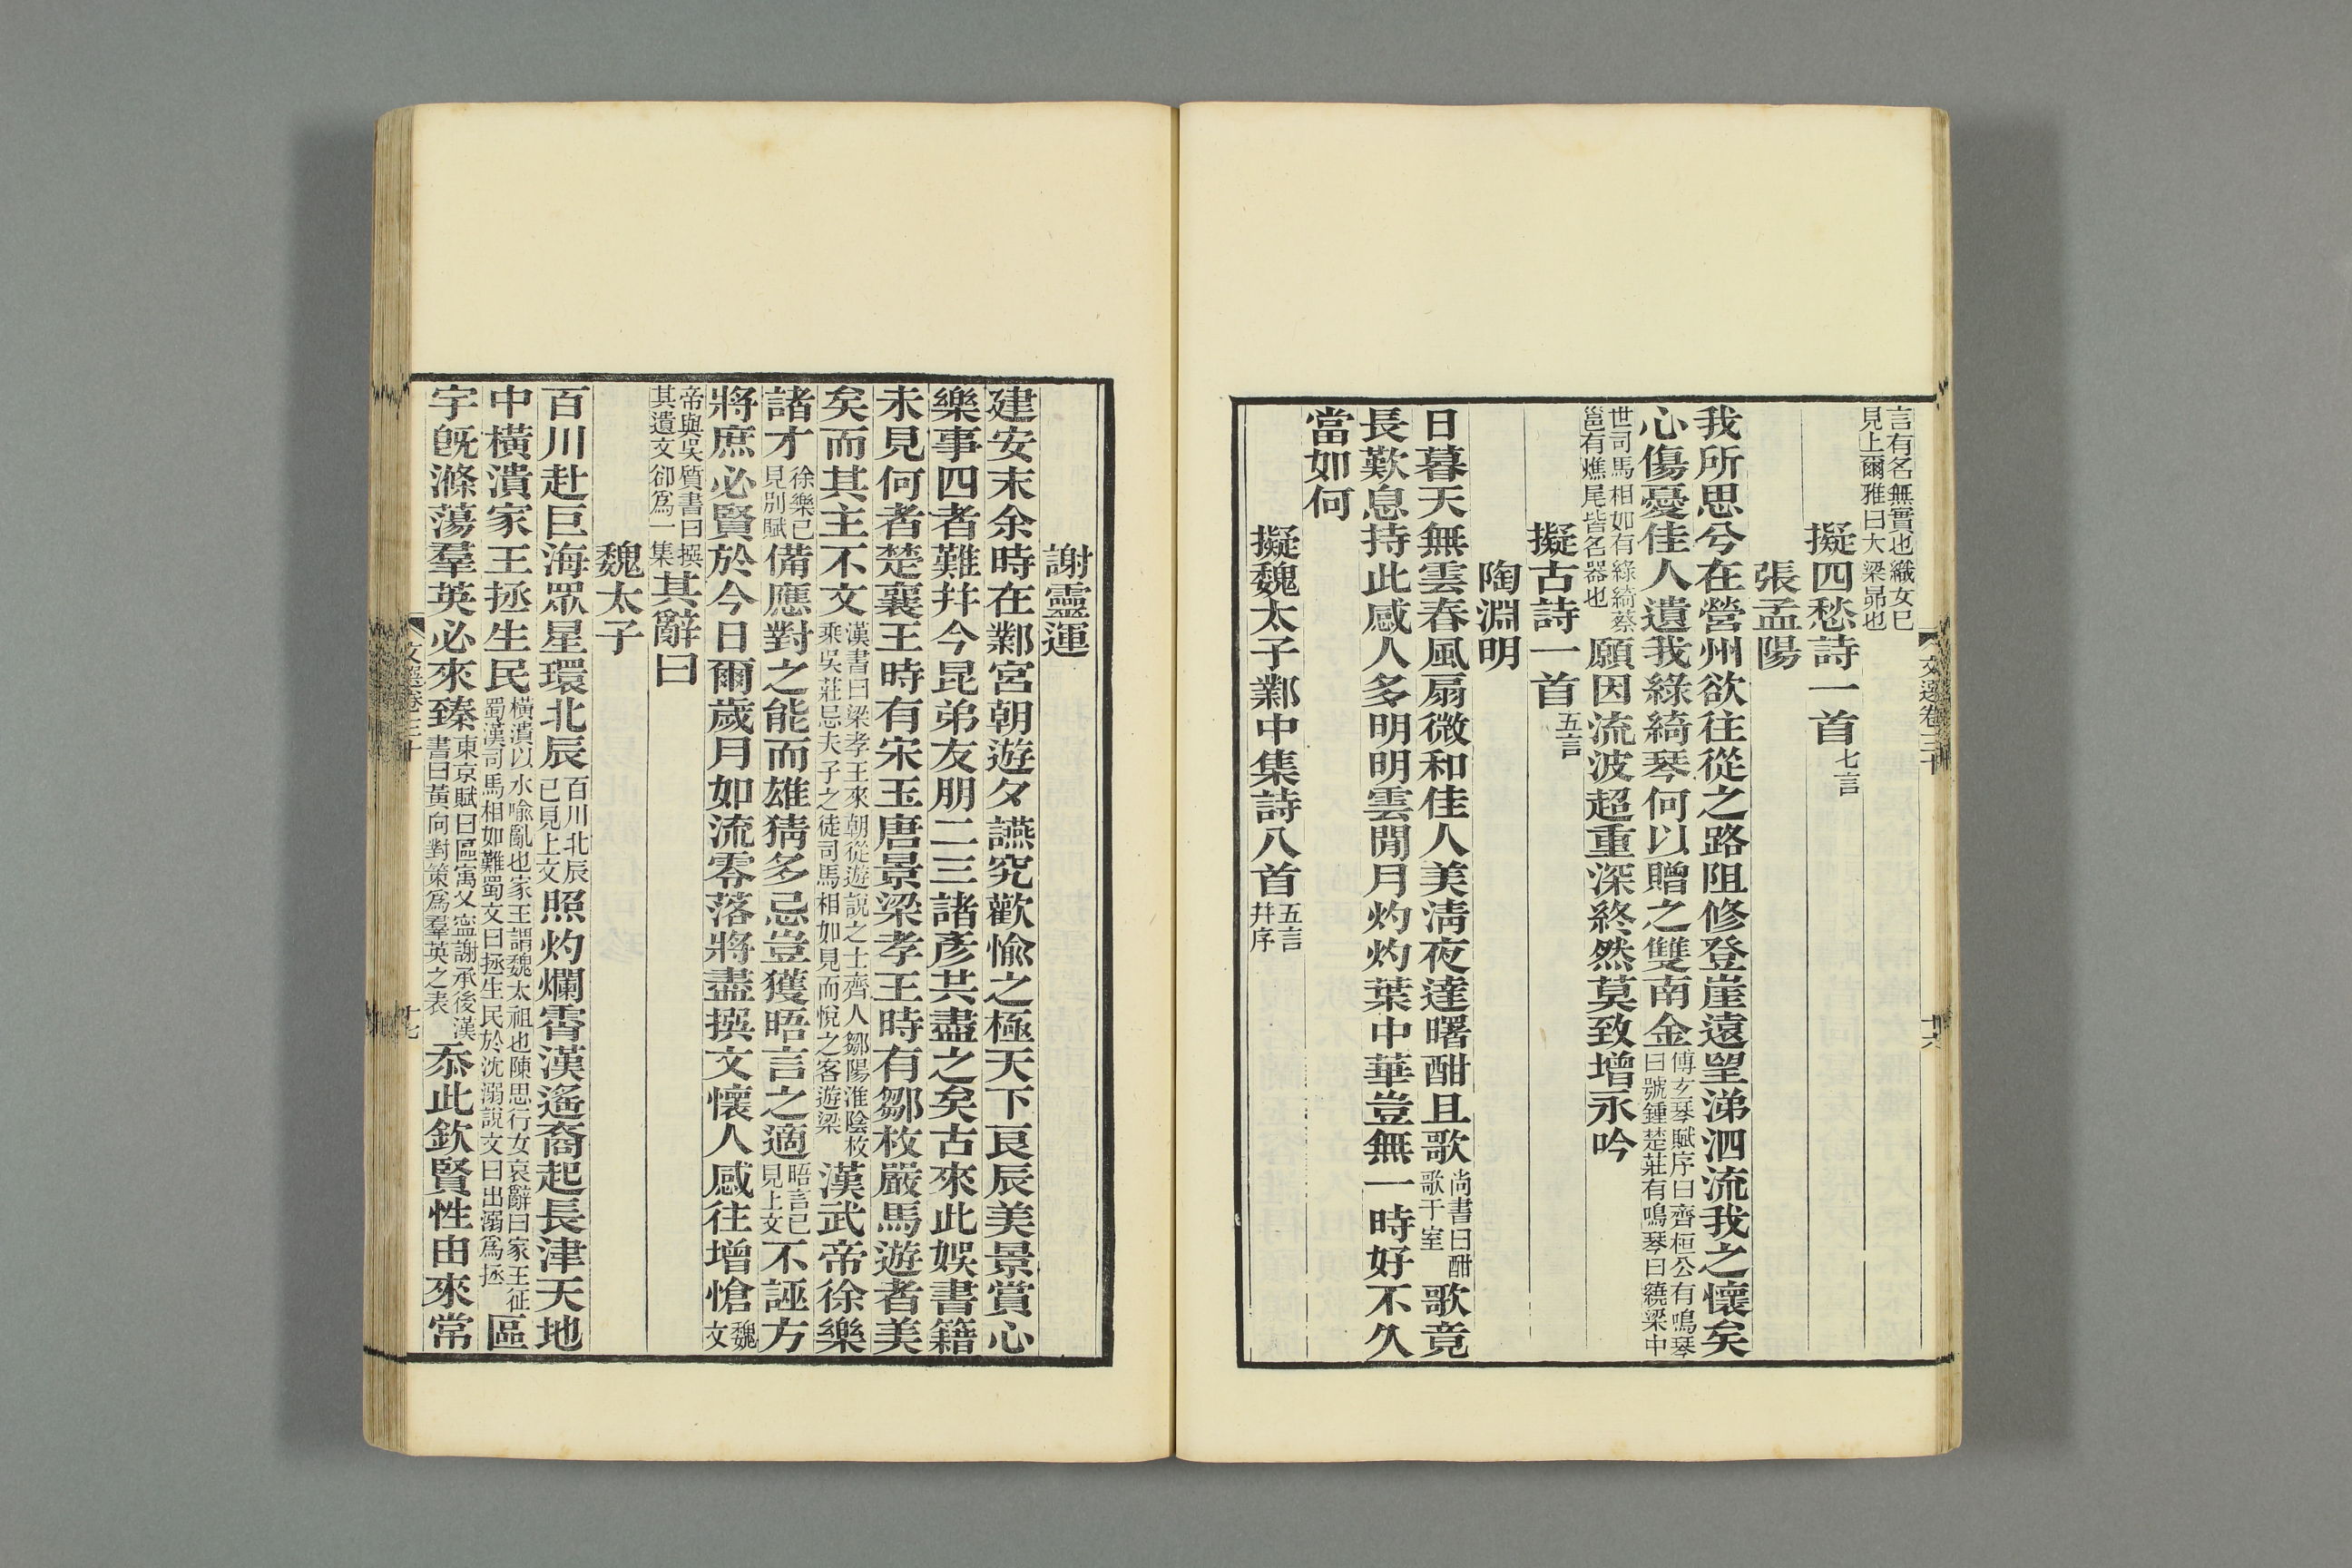 言有名無實也織女已
見上爾雅曰大梁昴也
擬四愁詩一首七言
張孟陽
我所思兮在營州欲往從之路阻修登崖遠望涕泗流我之懷矣
心傷憂佳人遺我綠綺琴何以贈之雙南金傅玄琴賦序曰齊桓公有鳴琴
曰號鍾楚莊有鳴琴曰繞梁中
世司馬相如有綠綺蔡
邕有燋尾皆名器也願因流波超重深終然莫致增永吟
擬古詩一首五言
陶淵明
日暮天無雲春風扇微和佳人美淸夜達曙酣且歌尚書曰酣
歌于室歌竟
長歎息持此感人多明明雲閒月灼灼葉中華豈無一時好不久
當如何
擬魏太子鄴中集詩八首五言
幷序
文選卷三十
十六
謝靈運
建安末余時在鄴宮朝遊夕讌究歡愉之極天下良辰美景賞心
樂事四者難幷今昆弟友朋二三諸彥共盡之矣古來此娛書籍
未見何者楚襄王時有宋玉唐景梁孝王時有鄒枚嚴馬遊者美
矣而其主不文漢書曰梁孝王來朝從遊說之士齊人鄒陽淮陰枚
乘吳莊忌夫子之徒司馬相如見而悅之客遊梁漢武帝徐樂
諸才徐樂已
見別賦備應對之能而雄猜多忌豈獲晤言之適晤言已
見上文不誣方
將庶必賢於今日爾歲月如流零落將盡撰文懷人感往增愴魏
文
帝與吳質書曰撰
其遺文卻爲一集其辭曰
魏太子
百川赴巨海眾星環北辰百川北辰
已見上文照灼爛霄漢遙裔起長津天地
中橫潰家王拯生民橫潰以水喻亂也家王謂魏太祖也陳思行女哀辭曰家王征
蜀漢司馬相如難蜀文曰拯生民於沈溺說文曰出溺爲拯區
宇旣滌蕩羣英必來臻東京賦曰區寓乂寍謝承後漢
書曰黃向對策爲羣英之表忝此欽賢性由來常
文選卷三十
十七